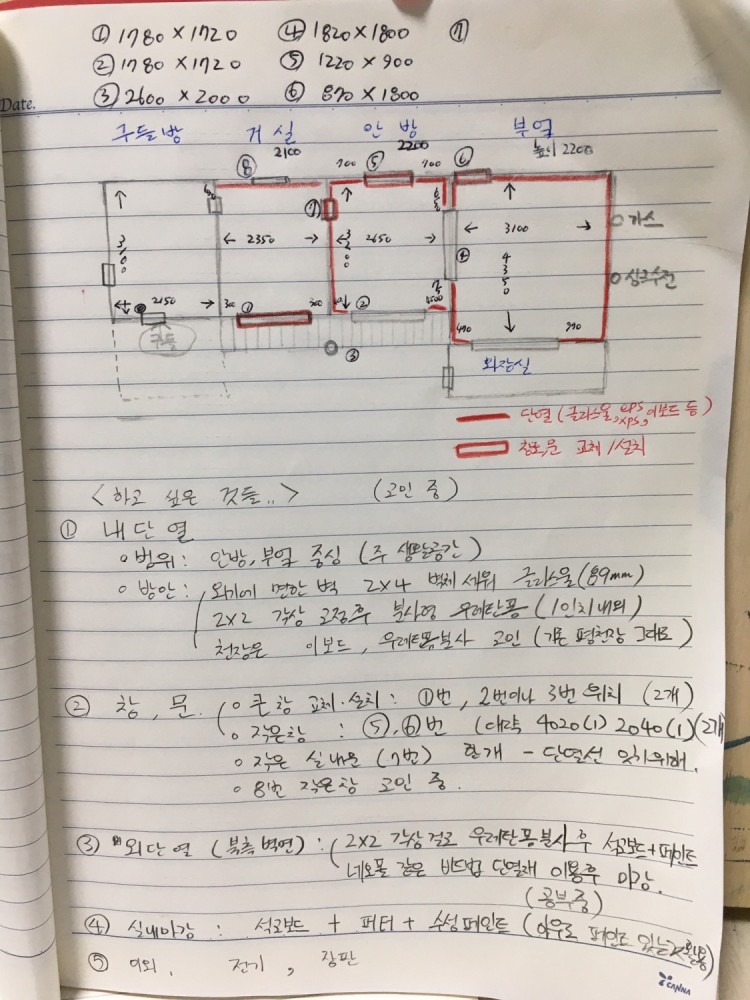 ① 1780 × 1720 ④ 1820 × 1800 ⑦
② 1780 × 1720 ⑤ 1220 × 900
③ 2600 × 2000 ⑥ 870 × 1800
Date.
구들방 거실 안방 부엌
⑧ 2100 700 ⑤ 2200 700 ⑥ 높이 2200
⑦
← 2350 → ← 2650 → ← 3100 → 가스
3100 3200 ④ 4350
싱크수전
2150 → 300 ① 300 ②
구들 ③ 490 990
화장실
단열 (글라스울, eps, xps, 이보드 등)
창호, 문 교체/설치
<하고 싶은 것들..> (고민 중)
① 내단열
○ 범위: 안방, 부엌 중심 (주 생활공간)
○ 방안: 외기에 면한 벽 2×4 벽체 세워 글라스울 (89mm)
2×2 각상 고정후 분사형 우레탄폼 (1인치 내외)
천장은 이보드, 우레탄폼분사 고민 (기존 평천장 그대로)
② 창, 문. ○ 큰 창 교체·설치: ①번, 2번이나 3번 위치 (2개)
○ 작은창 : ⑤, ⑥번 (대략 4020(1) 2040(1) (2개)
○ 작은 실내문 (7번) 한개 - 단열선 잇기위해.
○ 8번 작은창 고민 중.
③ 외단열 (북측 벽면): 2×2 각상 걸고 우레탄폼분사 후 석고보드+페인트
네오폴 같은 비드법 단열재 이용후 미장.
(공부중)
④ 실내마감: 석고보드 + 퍼티 + 수성페인트 (아우로 페인트 있는거 활용)
⑤ 이외. 전기, 장판
CANNA